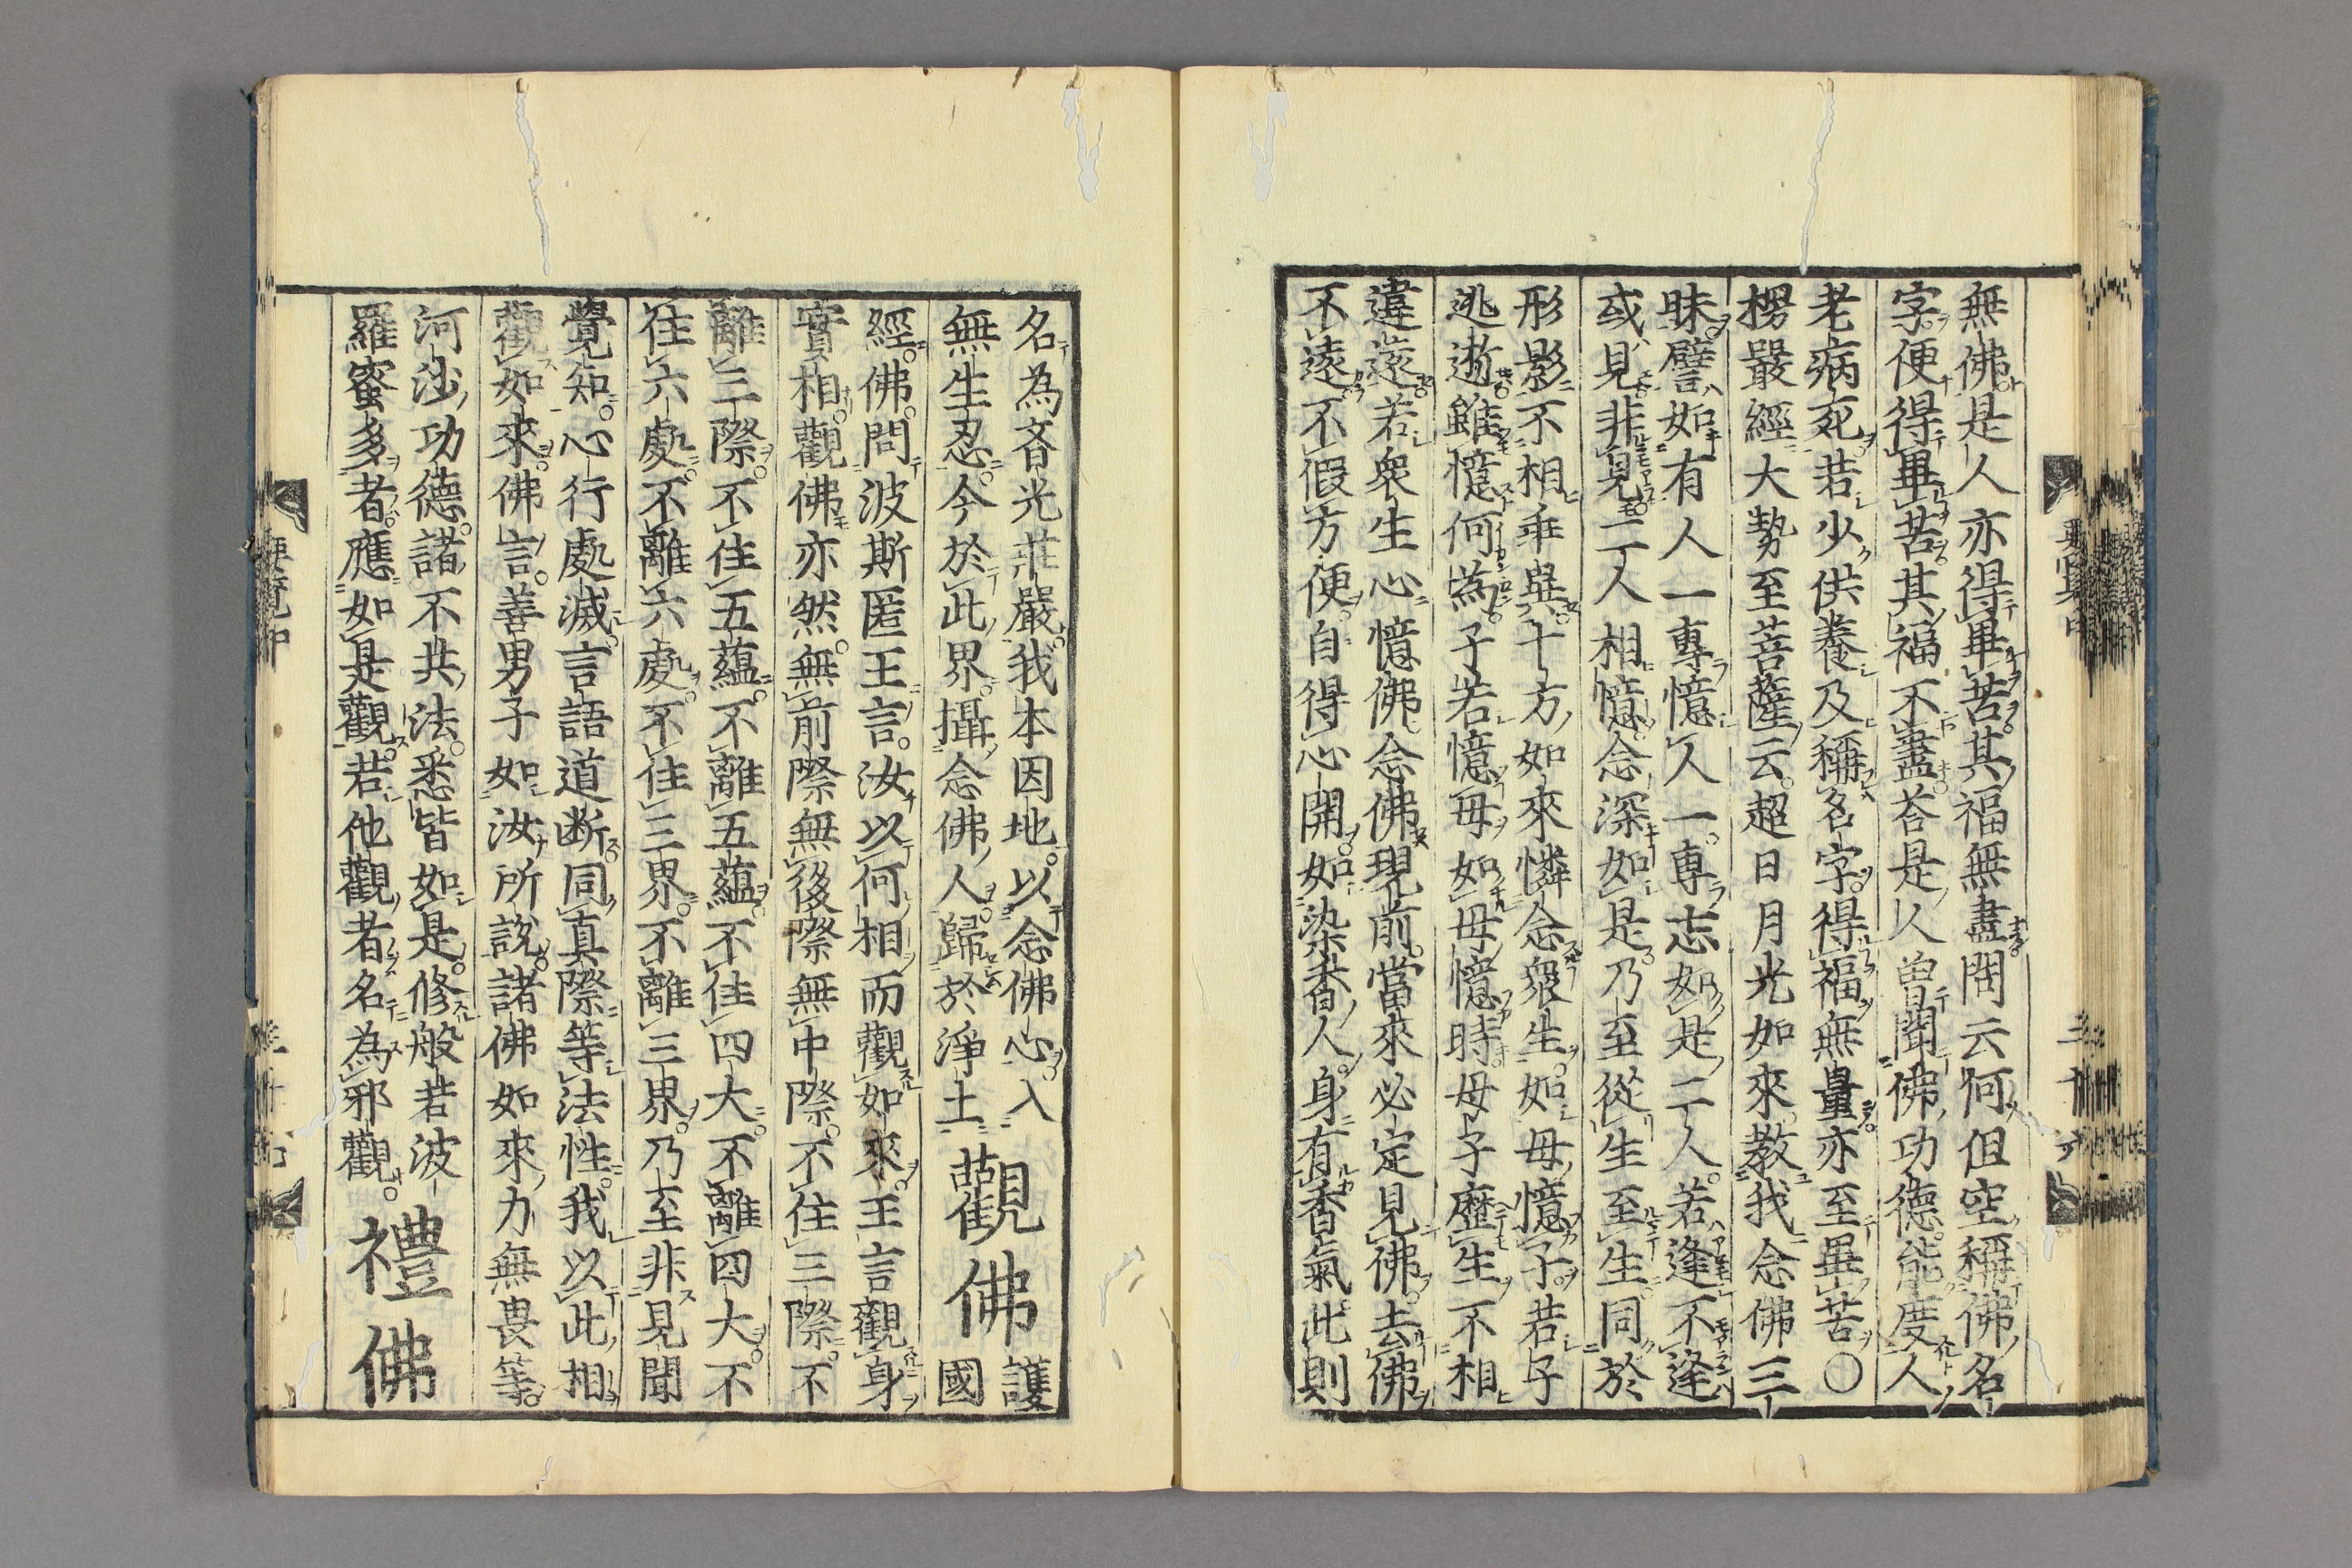 無佛是人亦得畢苦其福無盡問云何但空稱佛名
字便得畢苦其福不盡荅是人曽聞佛功德能度人
老病死若少供養及稱名字得福無量亦至畢苦〇
楞嚴經大勢至菩薩云超日月光如來教我念佛三
昧譬如有人一專憶人一專忘如是二人若逢不逢
或見非見二人相憶念深如是乃至從生至生同於
形影不相乖異十方如來憐念衆生如母憶子若子
逃逝雖憶何為子若憶母如母憶時母子歴生不相
違遠若衆生心憶佛念佛現前當來必定見佛去佛
不遠不假方便自得心開如染香人身有香氣此則
名為香光莊嚴我本因地以念佛心入
無生忍今於此界攝念佛人歸於淨土 觀佛 護國
經佛問波斯匿王言汝以何相而觀如來王言觀身
實相觀佛亦然無前際無後際無中際不住三際不
離三際不住五蘊不離五蘊不住四大不離四大不
住六處不離六處不住三界不離三界乃至非見聞
覺知心行處滅言語道断同真際等法性我以此相
觀如來佛言善男子如汝所說諸佛如來力無畏等
河沙功德諸不共法悉皆如是修般若波
羅蜜多者應如是觀若他觀者名為邪觀 禮佛